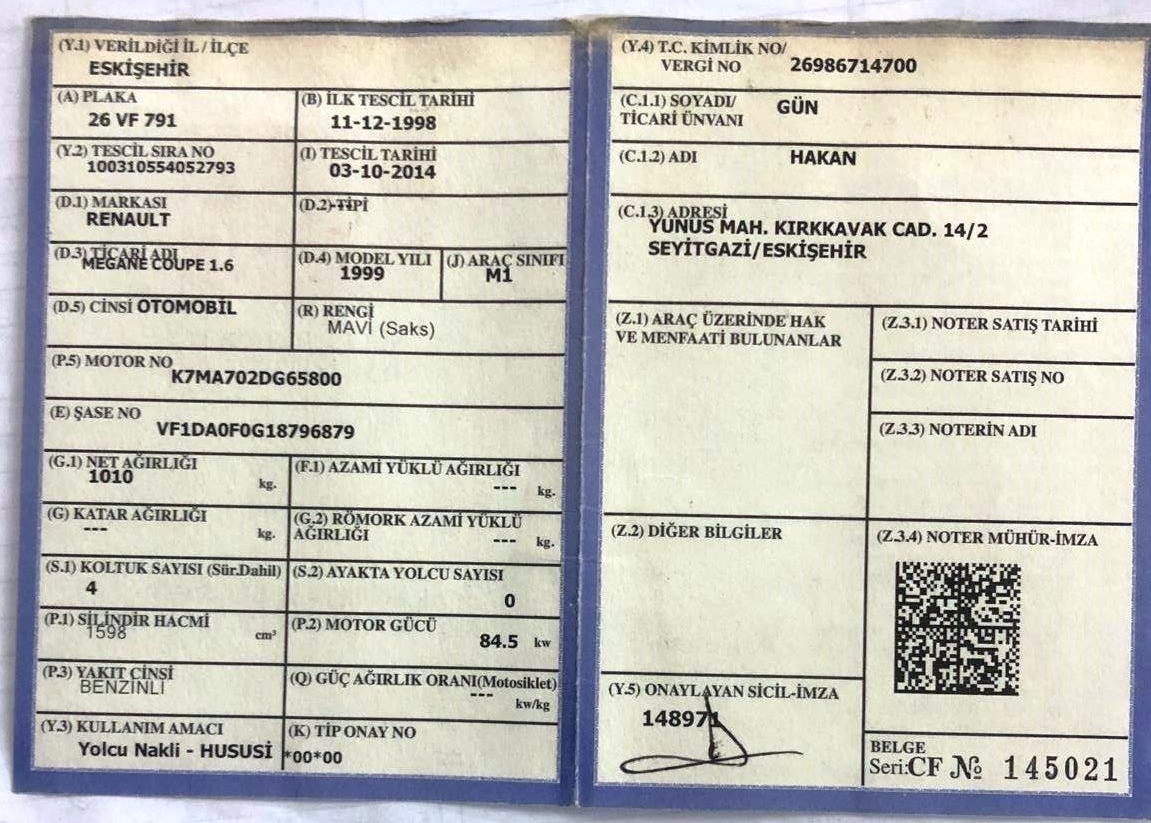 (Y.1) VERİLDİĞİ İL / İLÇE
ESKİŞEHİR
(A) PLAKA
26 VF 791
(B) İLK TESCİL TARİHİ
11-12-1998
(Y.2) TESCİL SIRA NO
100310554052793
(I) TESCİL TARİHİ
03-10-2014
(D.1) MARKASI
RENAULT
(D.2) TİPİ
(D.3) TİCARİ ADI
MEGANE COUPE 1.6
(D.4) MODEL YILI
1999
(J) ARAÇ SINIFI
M1
(D.5) CİNSİ OTOMOBİL
(R) RENGİ
MAVİ (Saks)
(P.5) MOTOR NO
K7MA702DG65800
(E) ŞASE NO
VF1DA0F0G18796879
(G.1) NET AĞIRLIĞI
1010 kg.
(F.1) AZAMİ YÜKLÜ AĞIRLIĞI
--- kg.
(G) KATAR AĞIRLIĞI
--- kg.
(G.2) RÖMORK AZAMİ YÜKLÜ
AĞIRLIĞI --- kg.
(S.1) KOLTUK SAYISI (Sür.Dahil)
4
(S.2) AYAKTA YOLCU SAYISI
0
(P.1) SİLİNDİR HACMİ
1598 cm³
(P.2) MOTOR GÜCÜ
84.5 kw
(P.3) YAKIT CİNSİ
BENZİNLİ
(Q) GÜÇ AĞIRLIK ORANI(Motosiklet)
---
kw/kg
(Y.3) KULLANIM AMACI
Yolcu Nakli - HUSUSİ
(K) TİP ONAY NO
*00*00
(Y.4) T.C. KİMLİK NO/
VERGİ NO 26986714700
(C.1.1) SOYADI/ GÜN
TİCARİ ÜNVANI
(C.1.2) ADI HAKAN
(C.1.3) ADRESİ
YUNUS MAH. KIRKKAVAK CAD. 14/2
SEYİTGAZİ/ESKİŞEHİR
(Z.1) ARAÇ ÜZERİNDE HAK
VE MENFAATİ BULUNANLAR
(Z.3.1) NOTER SATIŞ TARİHİ
(Z.3.2) NOTER SATIŞ NO
(Z.3.3) NOTERİN ADI
(Z.2) DİĞER BİLGİLER
(Z.3.4) NOTER MÜHÜR-İMZA
(Y.5) ONAYLAYAN SİCİL-İMZA
148971
BELGE
Seri:CF № 145021